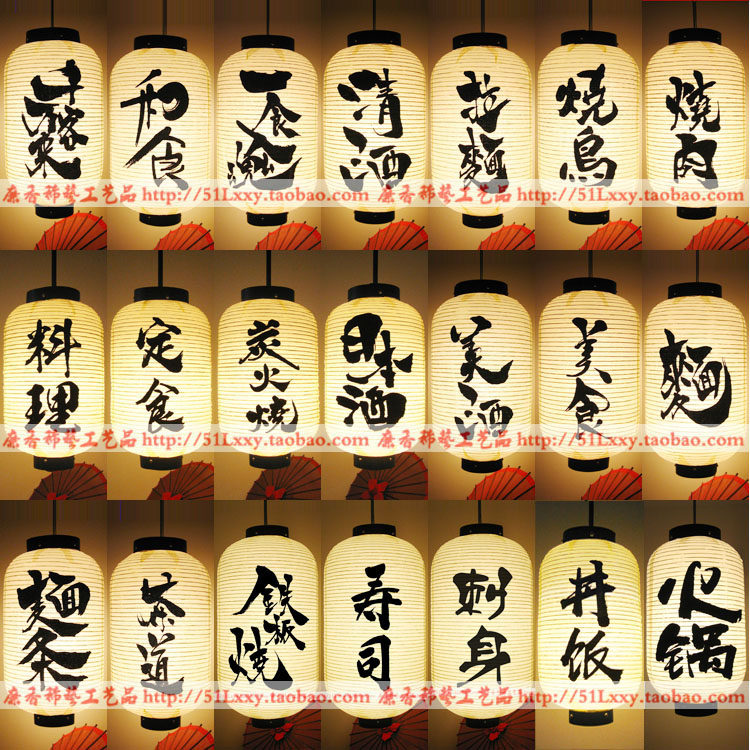 和食
一食入魂
清酒
拉麺
焼鳥
燒肉
廉香稀藝工艺品 http://51Lxxy.taobao.com 廉香稀藝工艺品 http://51Lxxy.taobao.com
料理
定食
炭火焼
日本酒
美酒
美食
麺
廉香稀藝工艺品 http://51Lxxy.taobao.com 廉香稀藝工艺品 http://51Lxxy.taobao.com
麺条
茶道
鉄板焼
寿司
刺身
丼饭
火锅
廉香稀藝工艺品 http://51Lxxy.taobao.com 廉香稀藝工艺品 http://51Lxxy.taobao.com